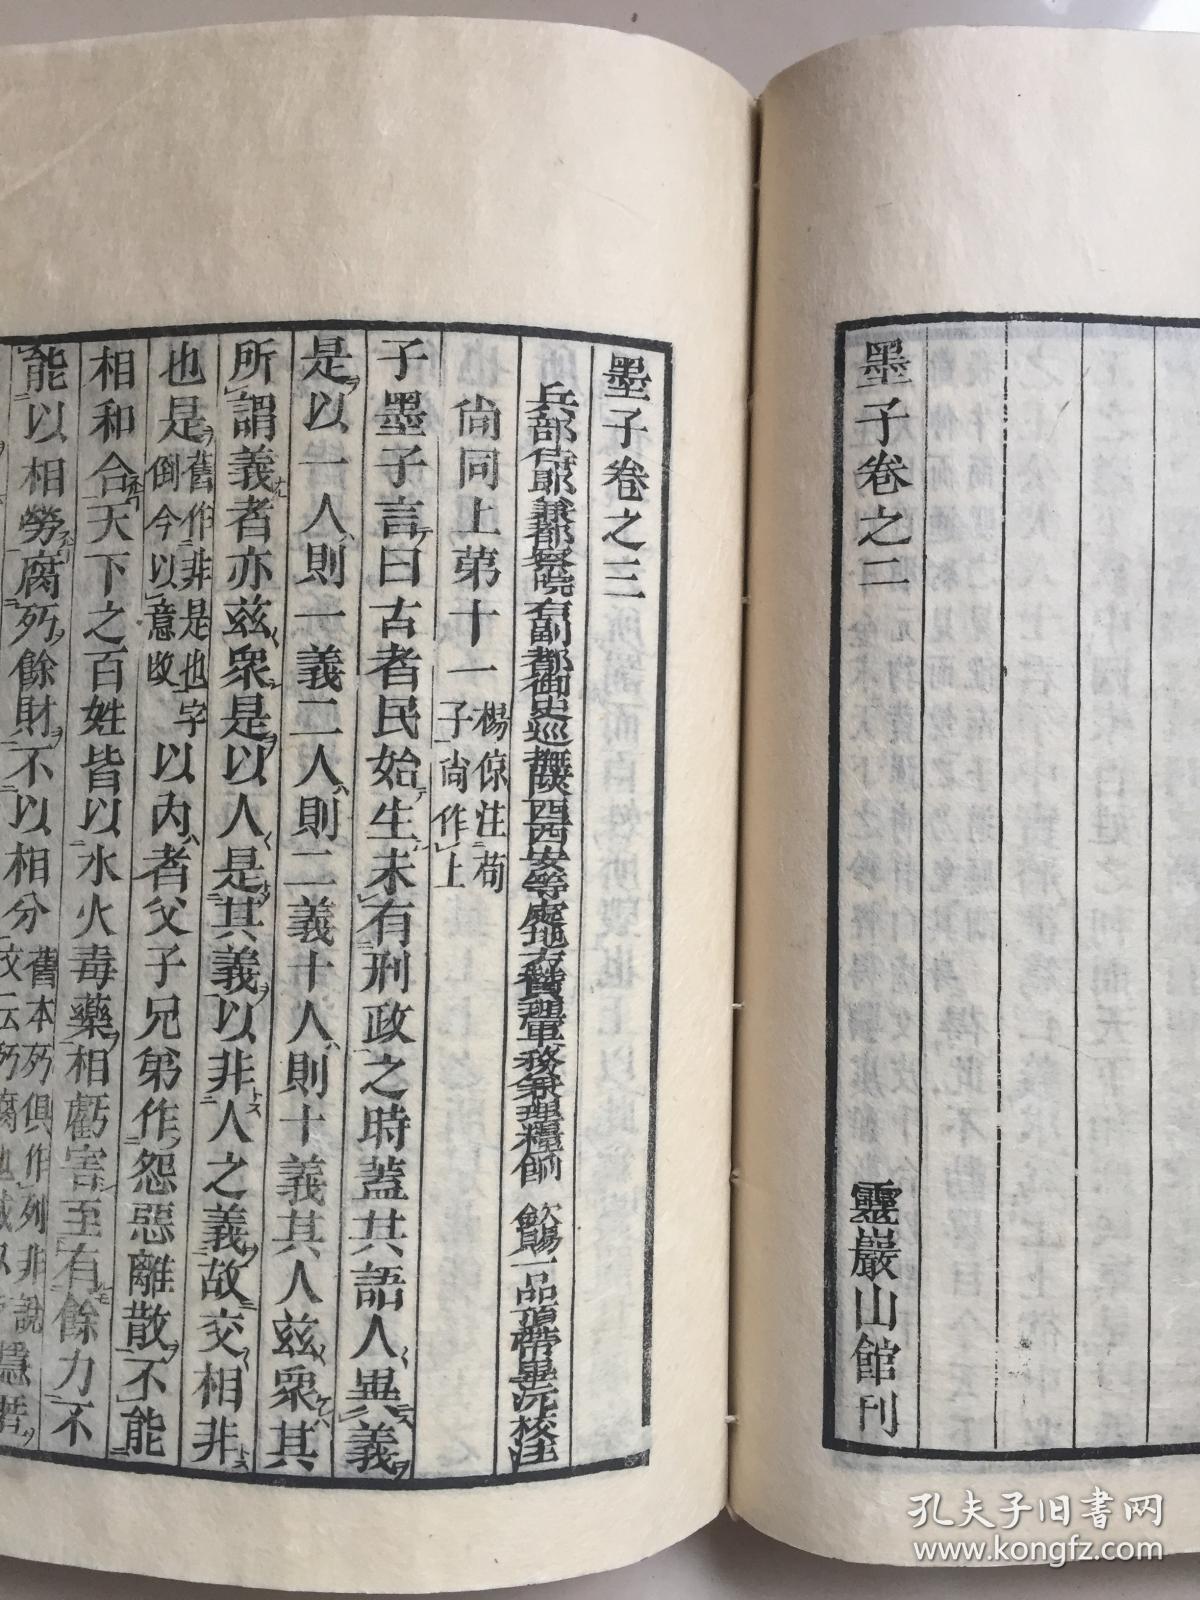 墨子卷之二
靈巖山館刊
墨子卷之三
兵部侍郎兼都察院右副都御史巡撫陝西西安等處地方贊理軍務兼理糧餉 欽賜一品頂帶畢沅校注
尙同上第十一 楊倞注荀子尙作上
子墨子言曰古者民始生未有刑政之時蓋其語人異義
是以一人則一義二人則二義十人則十義其人兹衆其
所謂義者亦兹衆是以人是其義以非人之義故交相非
也是舊作非是也字倒今以意改以內者父子兄弟作怨惡離散不能
相和合天下之百姓皆以水火毒藥相虧害至有餘力不
能以相勞腐㱙餘財不以相分舊本㱙俱作列非說
孔夫子旧书网
www.kongfz.com